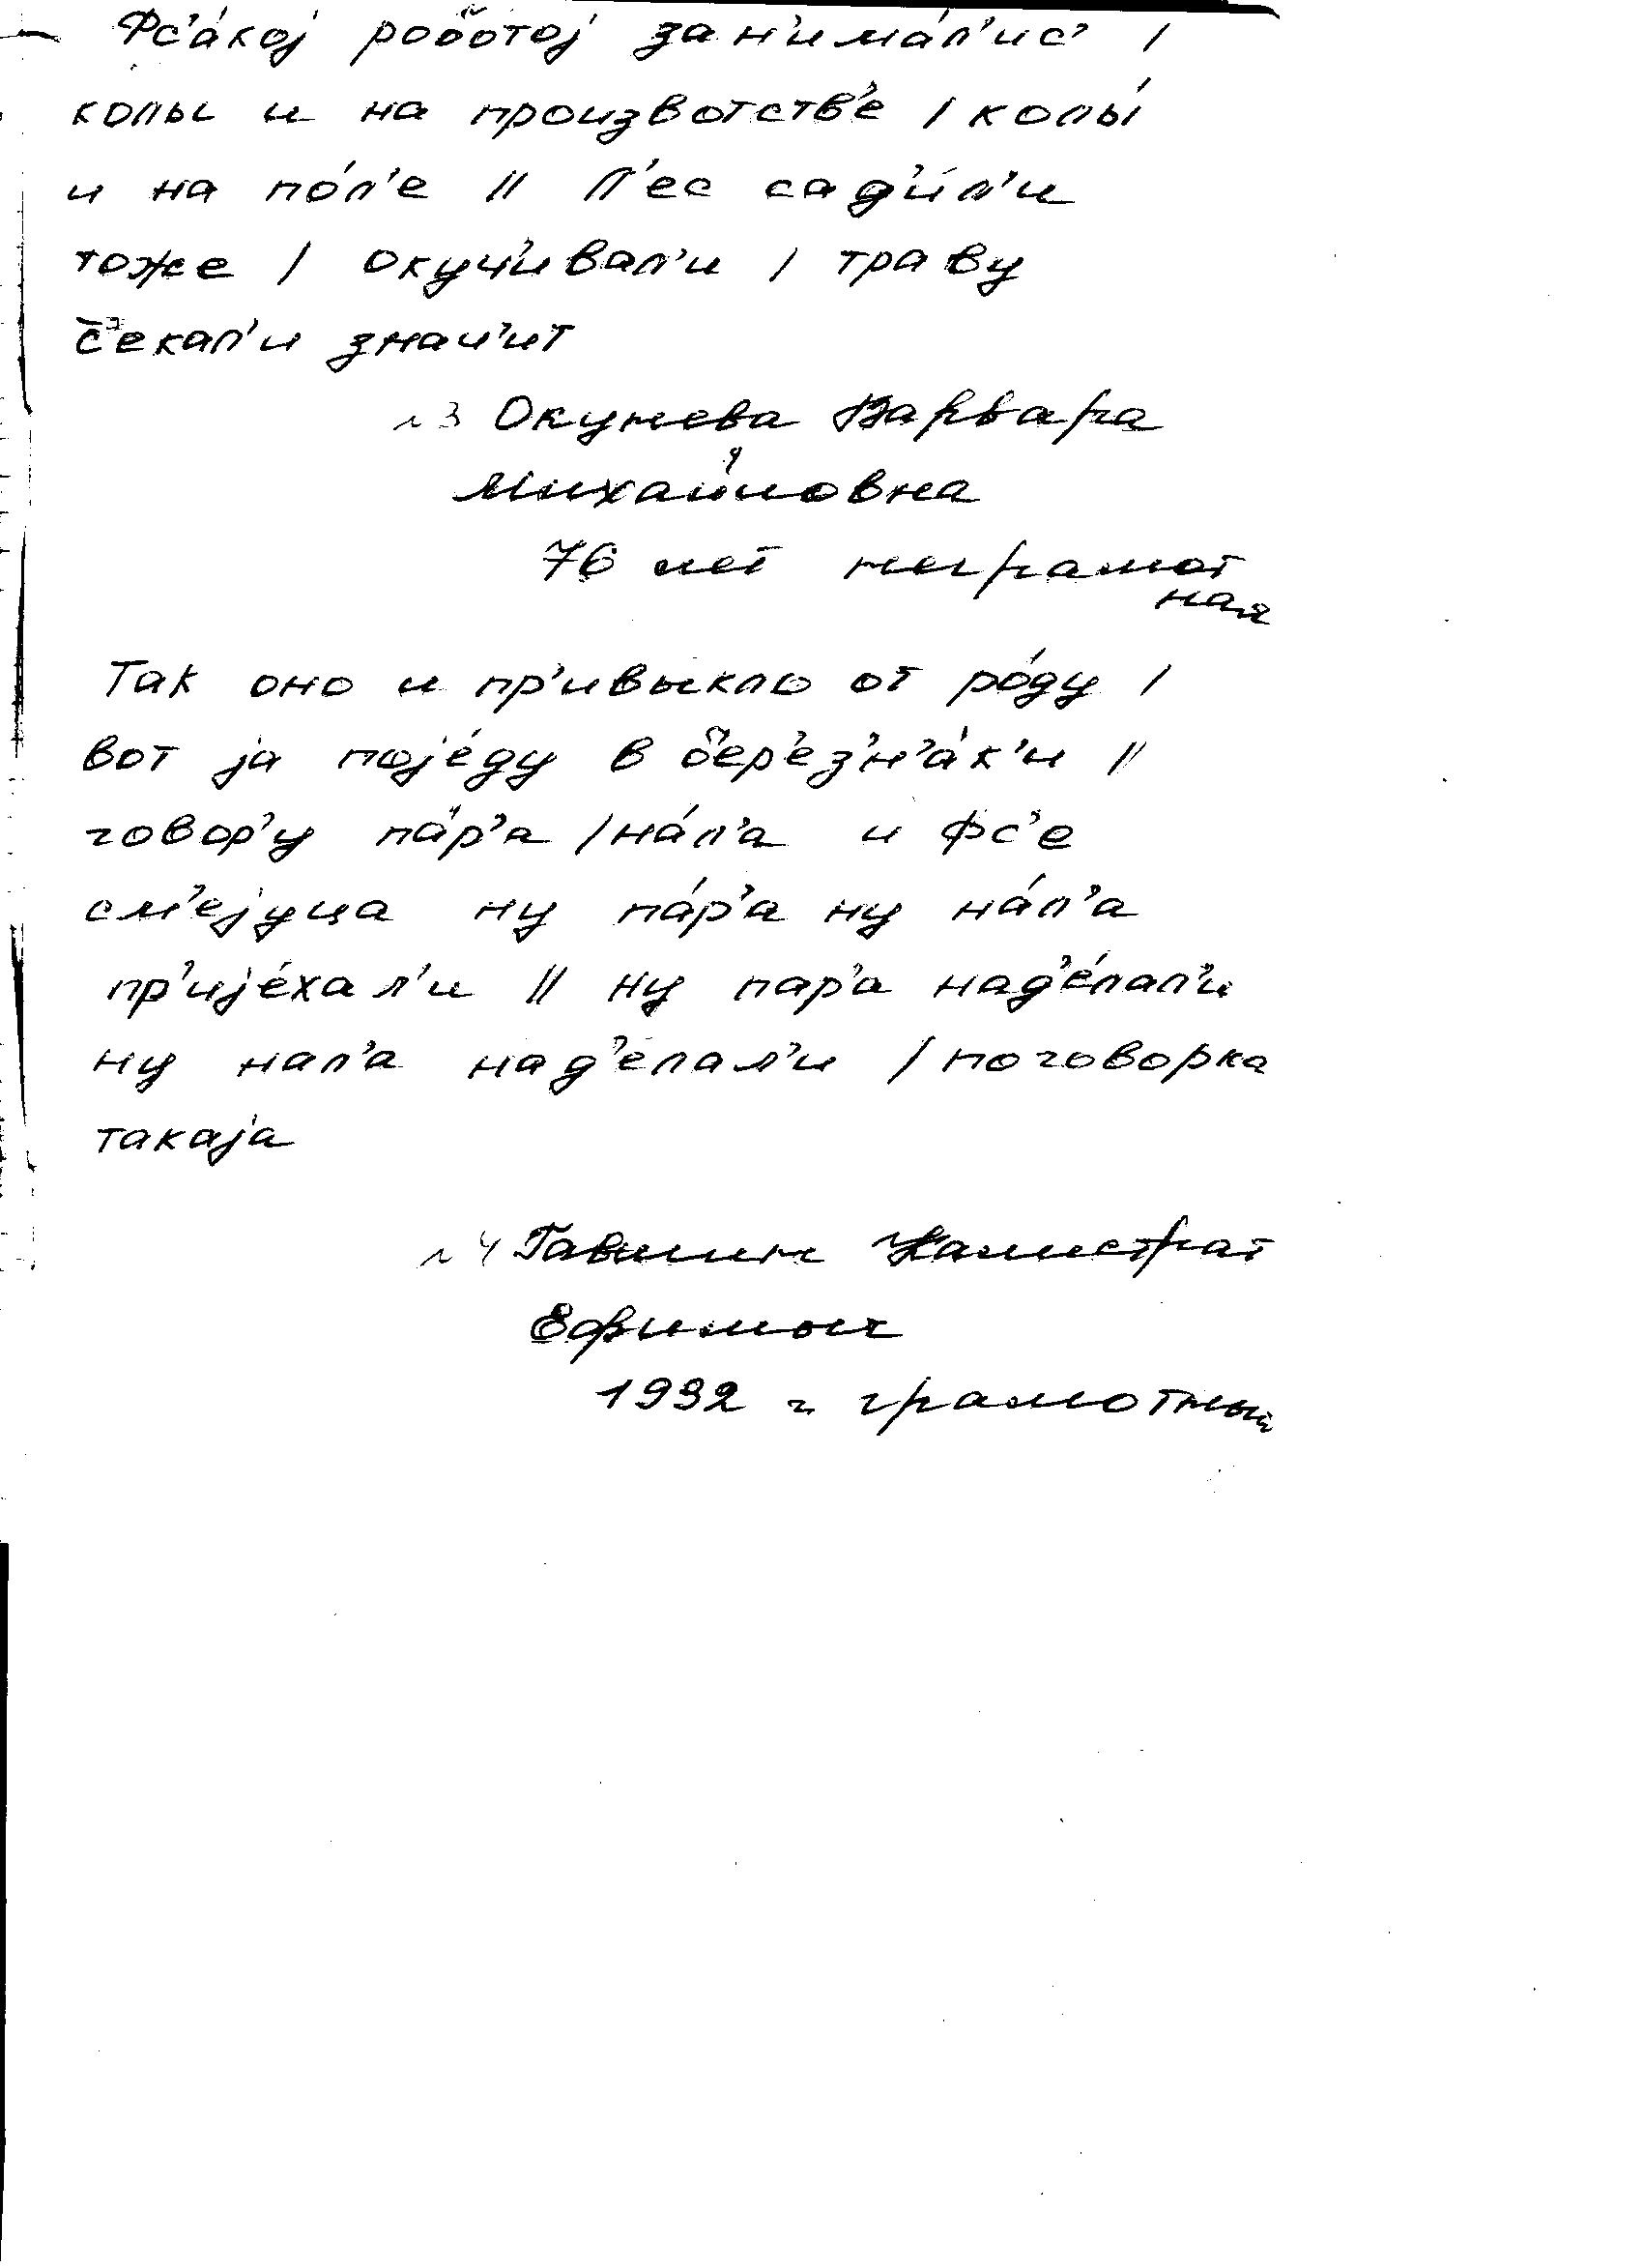 Фс'а́кој роботој зан'има́л'ис' /
колы и на произвотств'е / колы́
и на по́л'е // Л'ес сад'и́л'и
тоже / окуч'ивал'и / траву
с̅'екал'и знач'ит
л 3 Окунева Варвара
Михайловна
76 лет неграмот
ная
Так оно и пр'ивыкло от ро́ду /
вот ја поје́ду в б'ер'ез'н'а́к'и //
говор'у па́р'а / на́л'а и фс'е
см'ејуца ну па́р'а ну на́л'а
пр'ије́хал'и // ну пар'а над'е́лал'и
ну нал'а над'елал'и / поговорка
такаја
л 4 Гавшин Калистрат
Ефимыч
1932 г. грамотный